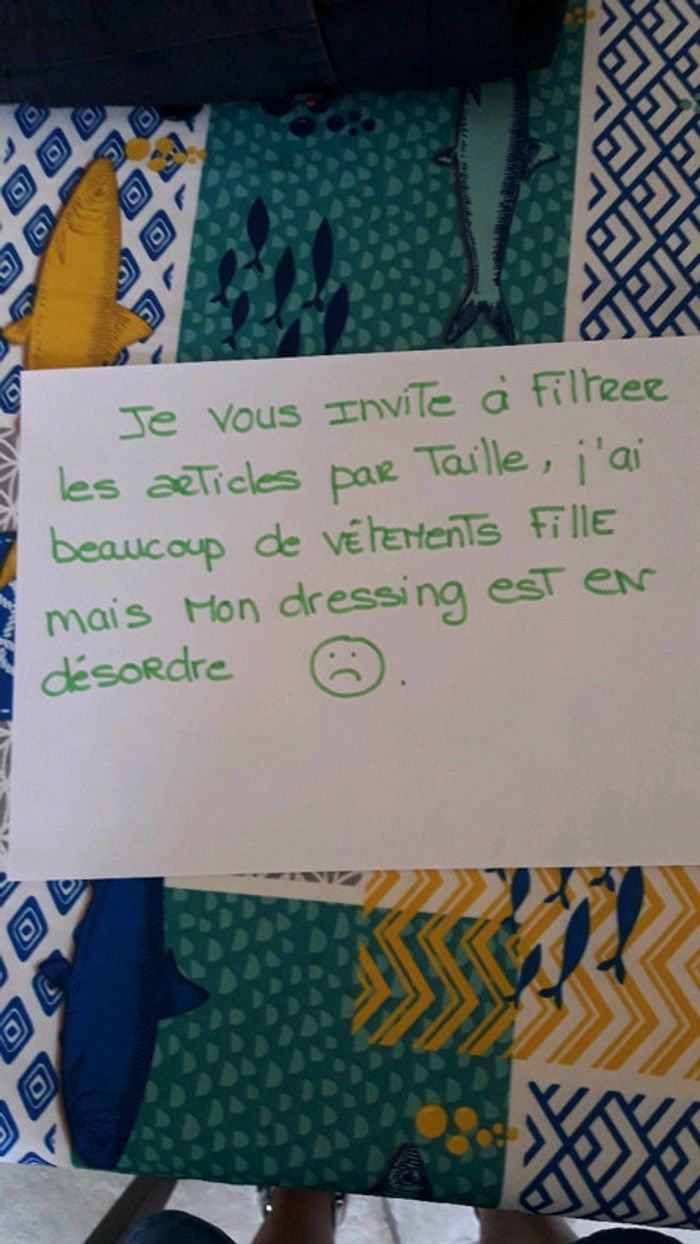 Je vous invite à filtreer
les articles par taille, j'ai
beaucoup de vêtements fille
mais mon dressing est en
désordre ☹.